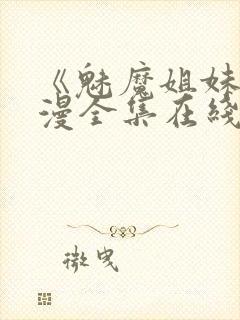 《魅魔姐妹
漫全集在线
微曳